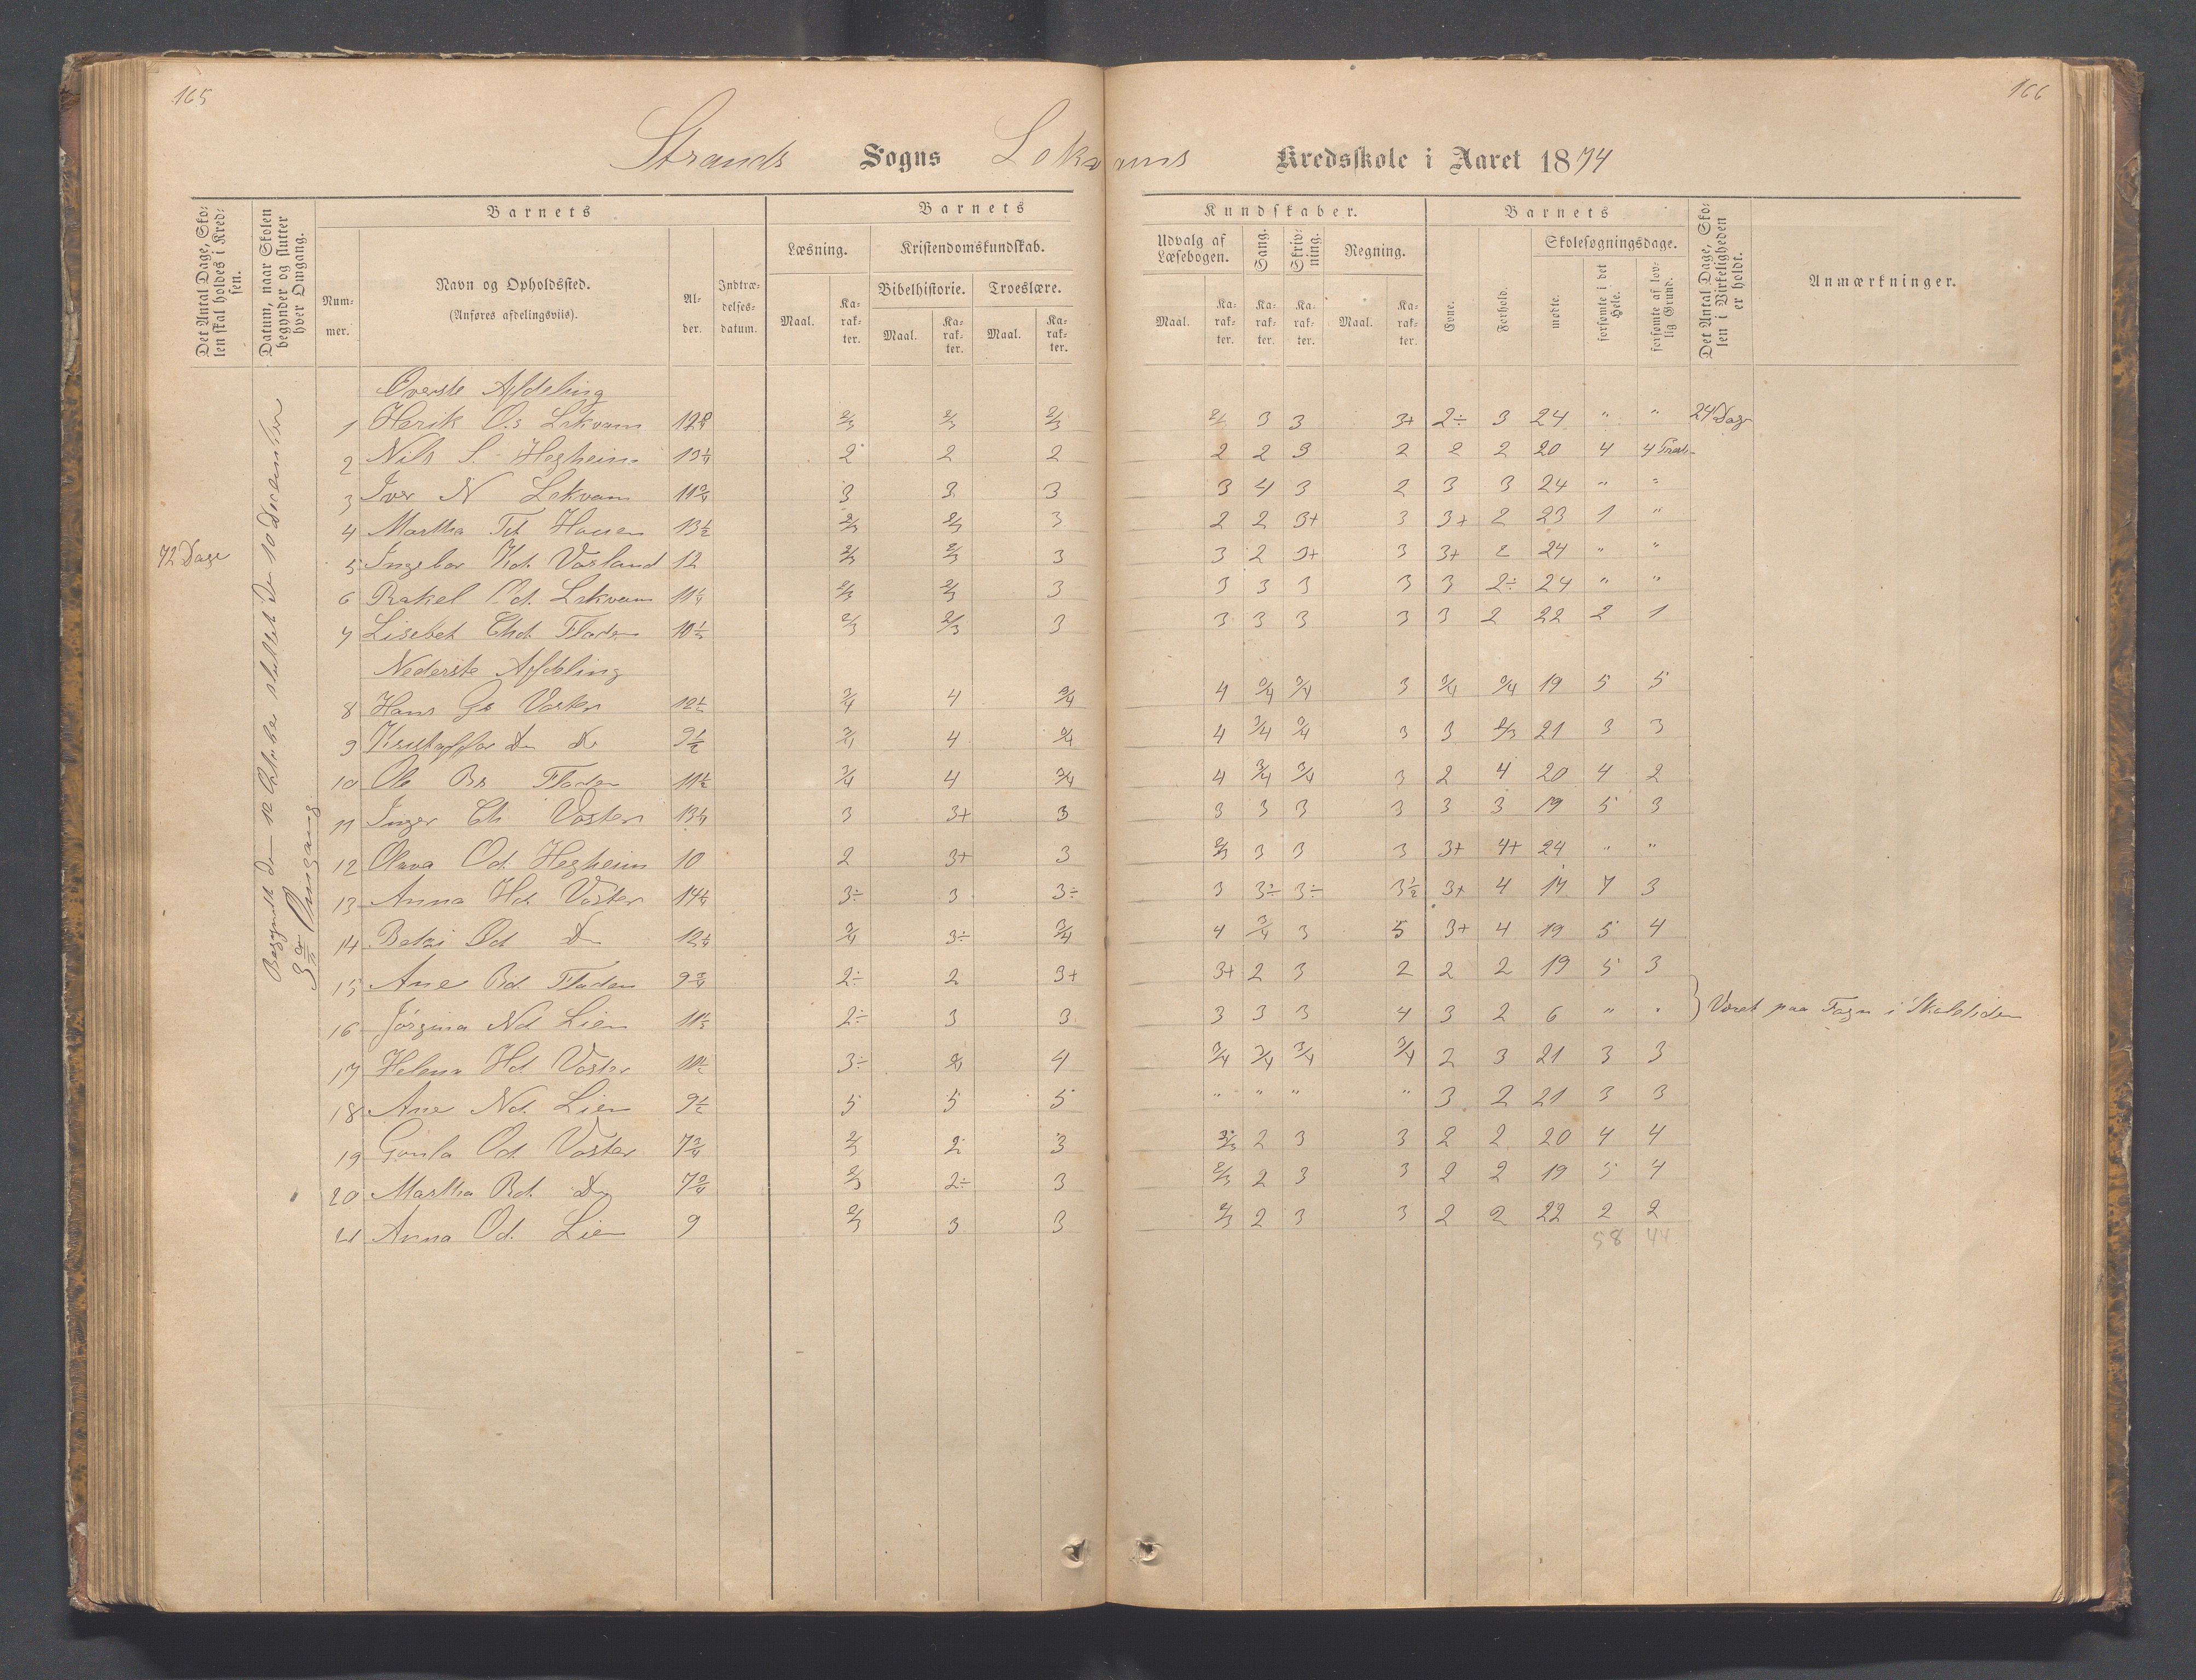 165
166
Strands Sogns Lekvams Kredsskole i Aaret 1874
Det Antal Dage, Skolen skal holdes i Kredsen.
Datum, naar Skolen begynder og slutter hver Omgang.
Barnets
Nummer.
Navn og Opholdssted.
(Anføres afdelingsviis).
Alder.
Indtrædelsesdatum.
Barnets Kundskaber.
Læsning.
Kristendomskundskab.
Bibelhistorie.
Troeslære.
Maal.
Karakter.
Maal.
Karakter.
Maal.
Karakter.
Udvalg af Læsebogen.
Sang.
Skrivning.
Regning.
Maal.
Karakter.
Karakter.
Karakter.
Maal.
Karakter.
Barnets
Evne.
Forhold.
Skolesøgningsdage.
mødte.
forsømte i det Hele.
forsømte af lovlig Grund.
Det Antal Dage, Skolen i Virkeligheden er holdt.
Anmærkninger.
72 Dage
Begyndt den 12 Oktober sluttet den 10 December
3die Omgang
Øverste Afdeling
1 Herik O.s Lekvam 12¾ 2/3 2/3 2/3 2/3 3 3 3+ 2÷ 3 24 " " 24 Dage
2 Nils S. Hegheim 13¼ 2 2 2 2 2 3 2 2 2 20 4 4
3 Iver N Lekvam 11¾ 3 3 3 3 4 3 2 3 3 24 " "
4 Martha Td. 13½ 2/3 2/3 3 2 2 3+ 3 3+ 2 23 1 "
5 Ingebor Kd. Vasland 12 2/3 2/3 3 3 2 3+ 3 3+ 2 24 " "
6 Rakel Od. Lekvam 11¼ 2/3 2/3 3 3 3 3 3 3 2÷ 24 " "
7 Lisebet Chd. Fladen 10½ 2/3 2/3 3 3 3 3 3 3 2 22 2 1
Nederste Afdeling
8 Hans Gs Vaster 12½ 3/4 4 3/4 4 3/4 3/4 3 3/4 3/4 19 5 5
9 Kristoffer Do Do 9½ 3/4 4 3/4 4 3/4 3/4 3 3 2/3 21 3 3
10 Ole Bs Fladen 11½ 3/4 4 3/4 4 3/4 3/4 3 2 4 20 4 2
11 Inger Ch Vaster 13¼ 3 3+ 3 3 3 3 3 3 3 19 5 3
12 Olava Od. Hegheim 10 2 3+ 3 2/3 3 3 3 3+ 4+ 24 " "
13 Anna Hd. Vaster 14¼ 3÷ 3 3÷ 3 3÷ 3÷ 3½ 3+ 4 17 7 3
14 Betzi Od. Do 12¼ 3/4 3÷ 3/4 4 3/4 3 5 3+ 4 19 5 4
15 Ane Bd. Fladen 9¾ 2÷ 2 3+ 3+ 2 3 2 2 2 19 5 3
16 Jørgina Nd Lien 11½ 2÷ 3 3 3 3 3 4 3 2 6 " " } Været paa Tagn i Skoletiden
17 Helena Hd. Vaster 10½ 3÷ 4 3/4 3/4 3/4 3/4 2 3 21 3 3
18 Ane Nd. Lien 9½ 5 5 5 " " " " 3 2 21 3 3
19 Gunla Od. Vaster 7¾ 2/3 2 3 2 3 3 2 2 20 4 4
20 Martha Bd. Do 7¾ 2/3 2÷ 3 2/3 2 3 3 2 2 19 5 4
21 Anna Od. Lien 9 2/3 3 3 2/3 2 3 3 2 2 22 2 2
58 44